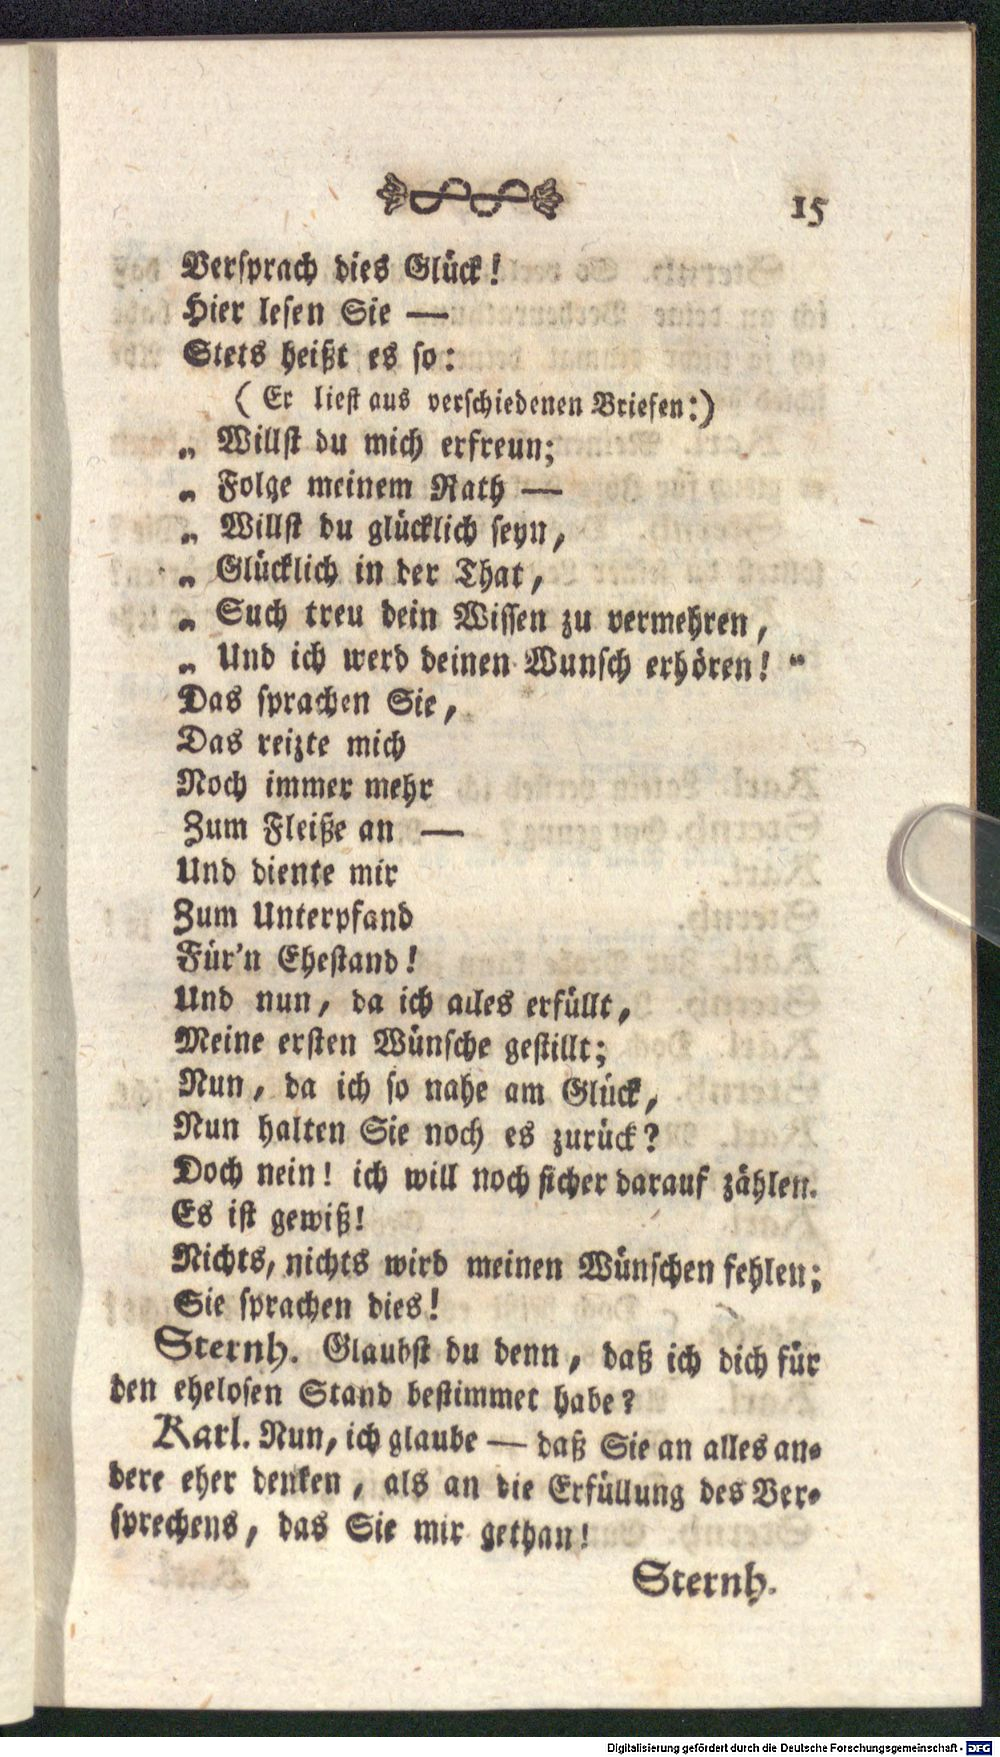 15
Versprach dies Glück!
Hier lesen Sie —
Stets heißt es so:
( Er liest aus verschiedenen Briefen:)
„ Willst du mich erfreun;
„ Folge meinem Rath —
„ Willst du glücklich seyn,
„ Glücklich in der That,
„ Such treu dein Wissen zu vermehren,
„ Und ich werd deinen Wunsch erhören! “
Das sprachen Sie,
Das reizte mich
Noch immer mehr
Zum Fleiße an —
Und diente mir
Zum Unterpfand
Für'n Ehestand!
Und nun, da ich alles erfüllt,
Meine ersten Wünsche gestillt;
Nun, da ich so nahe am Glück,
Nun halten Sie noch es zurück?
Doch nein! ich will noch sicher darauf zählen.
Es ist gewiß!
Nichts, nichts wird meinen Wünschen fehlen;
Sie sprachen dies!
Sternh. Glaubst du denn, daß ich dich für
den ehelosen Stand bestimmet habe?
Karl. Nun, ich glaube — daß Sie an alles an-
dere eher denken, als an die Erfüllung des Ver-
sprechens, das Sie mir gethan!
Sternh.
Digitalisierung gefördert durch die Deutsche Forschungsgemeinschaft - DFG